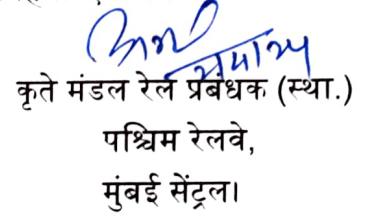 कृते मंडल रेल प्रबंधक (स्था.)
पश्चिम रेलवे,
मुंबई सेंट्रल।